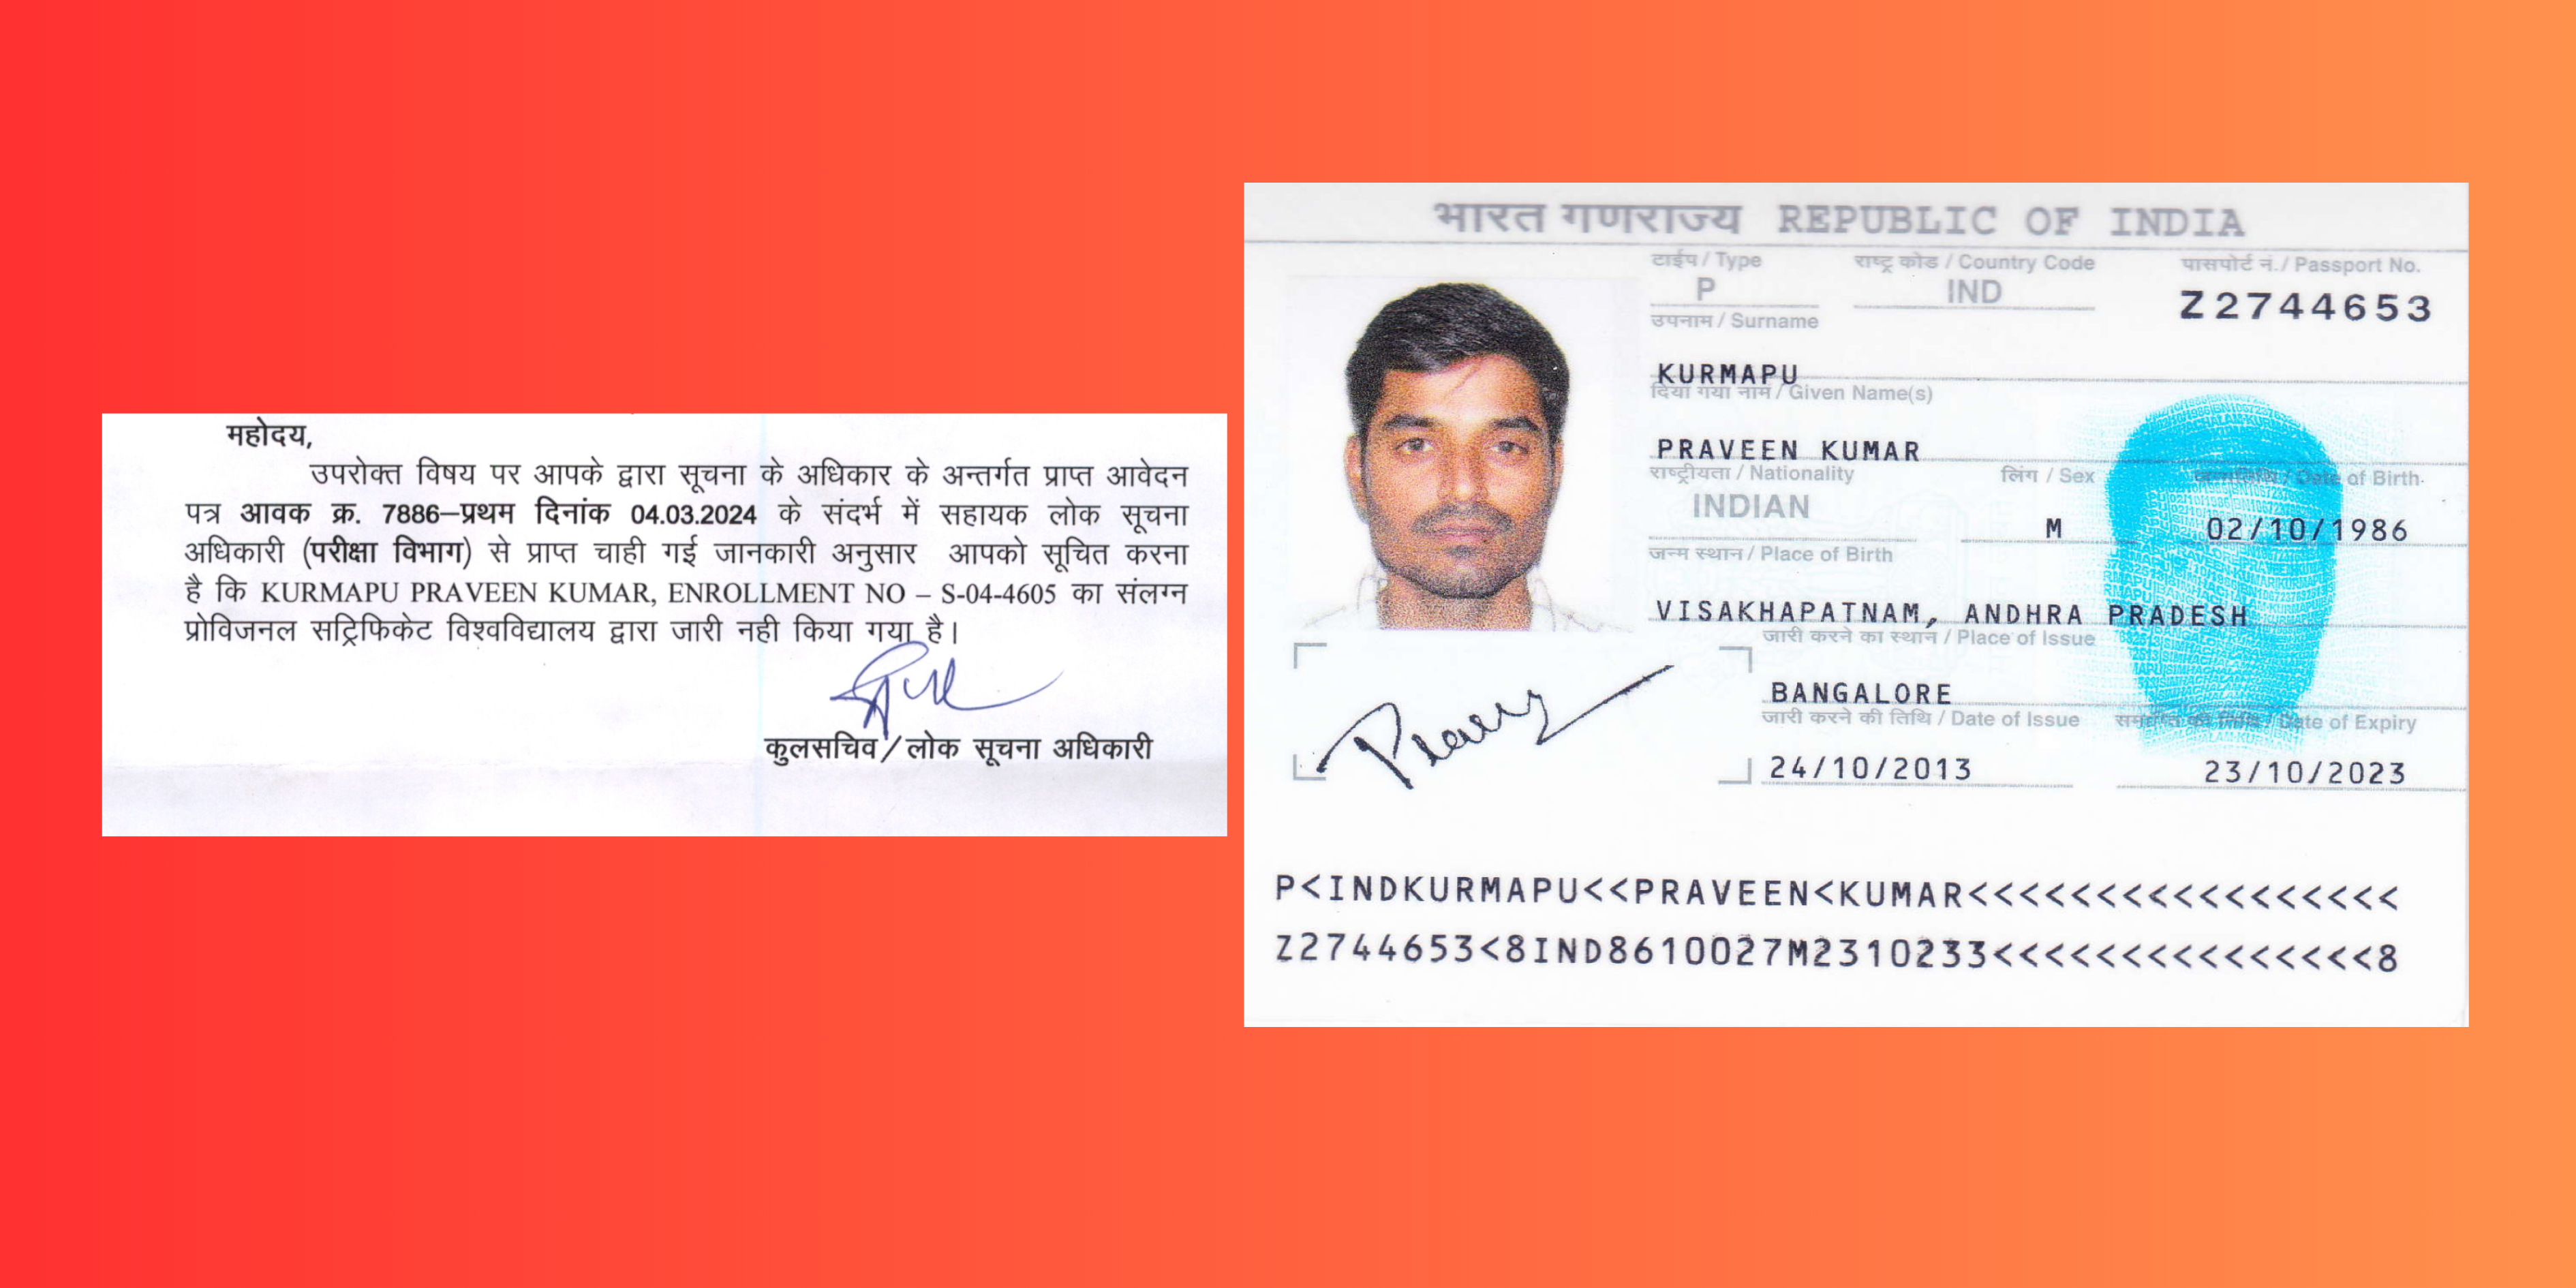 महोदय,
उपरोक्त विषय पर आपके द्वारा सूचना के अधिकार के अन्तर्गत प्राप्त आवेदन
पत्र आवक क्र. 7886–प्रथम दिनांक 04.03.2024 के संदर्भ में सहायक लोक सूचना
अधिकारी (परीक्षा विभाग) से प्राप्त चाही गई जानकारी अनुसार आपको सूचित करना
है कि KURMAPU PRAVEEN KUMAR, ENROLLMENT NO – S-04-4605 का संलग्न
प्रोविजनल सट्रिफिकेट विश्वविद्यालय द्वारा जारी नही किया गया है।
कुलसचिव/लोक सूचना अधिकारी
भारत गणराज्य REPUBLIC OF INDIA
टाईप / Type राष्ट्र कोड / Country Code पासपोर्ट नं. / Passport No.
P IND Z2744653
उपनाम / Surname
KURMAPU
दिया गया नाम / Given Name(s)
PRAVEEN KUMAR
राष्ट्रीयता / Nationality लिंग / Sex जन्मतिथि / Date of Birth
INDIAN M 02/10/1986
जन्म स्थान / Place of Birth
VISAKHAPATNAM, ANDHRA PRADESH
जारी करने का स्थान / Place of Issue
BANGALORE
जारी करने की तिथि / Date of Issue समाप्ति की तिथि / Date of Expiry
24/10/2013 23/10/2023
P<INDKURMAPU<<PRAVEEN<KUMAR<<<<<<<<<<<<<<<<<
Z2744653<8IND8610027M2310233<<<<<<<<<<<<<<<8